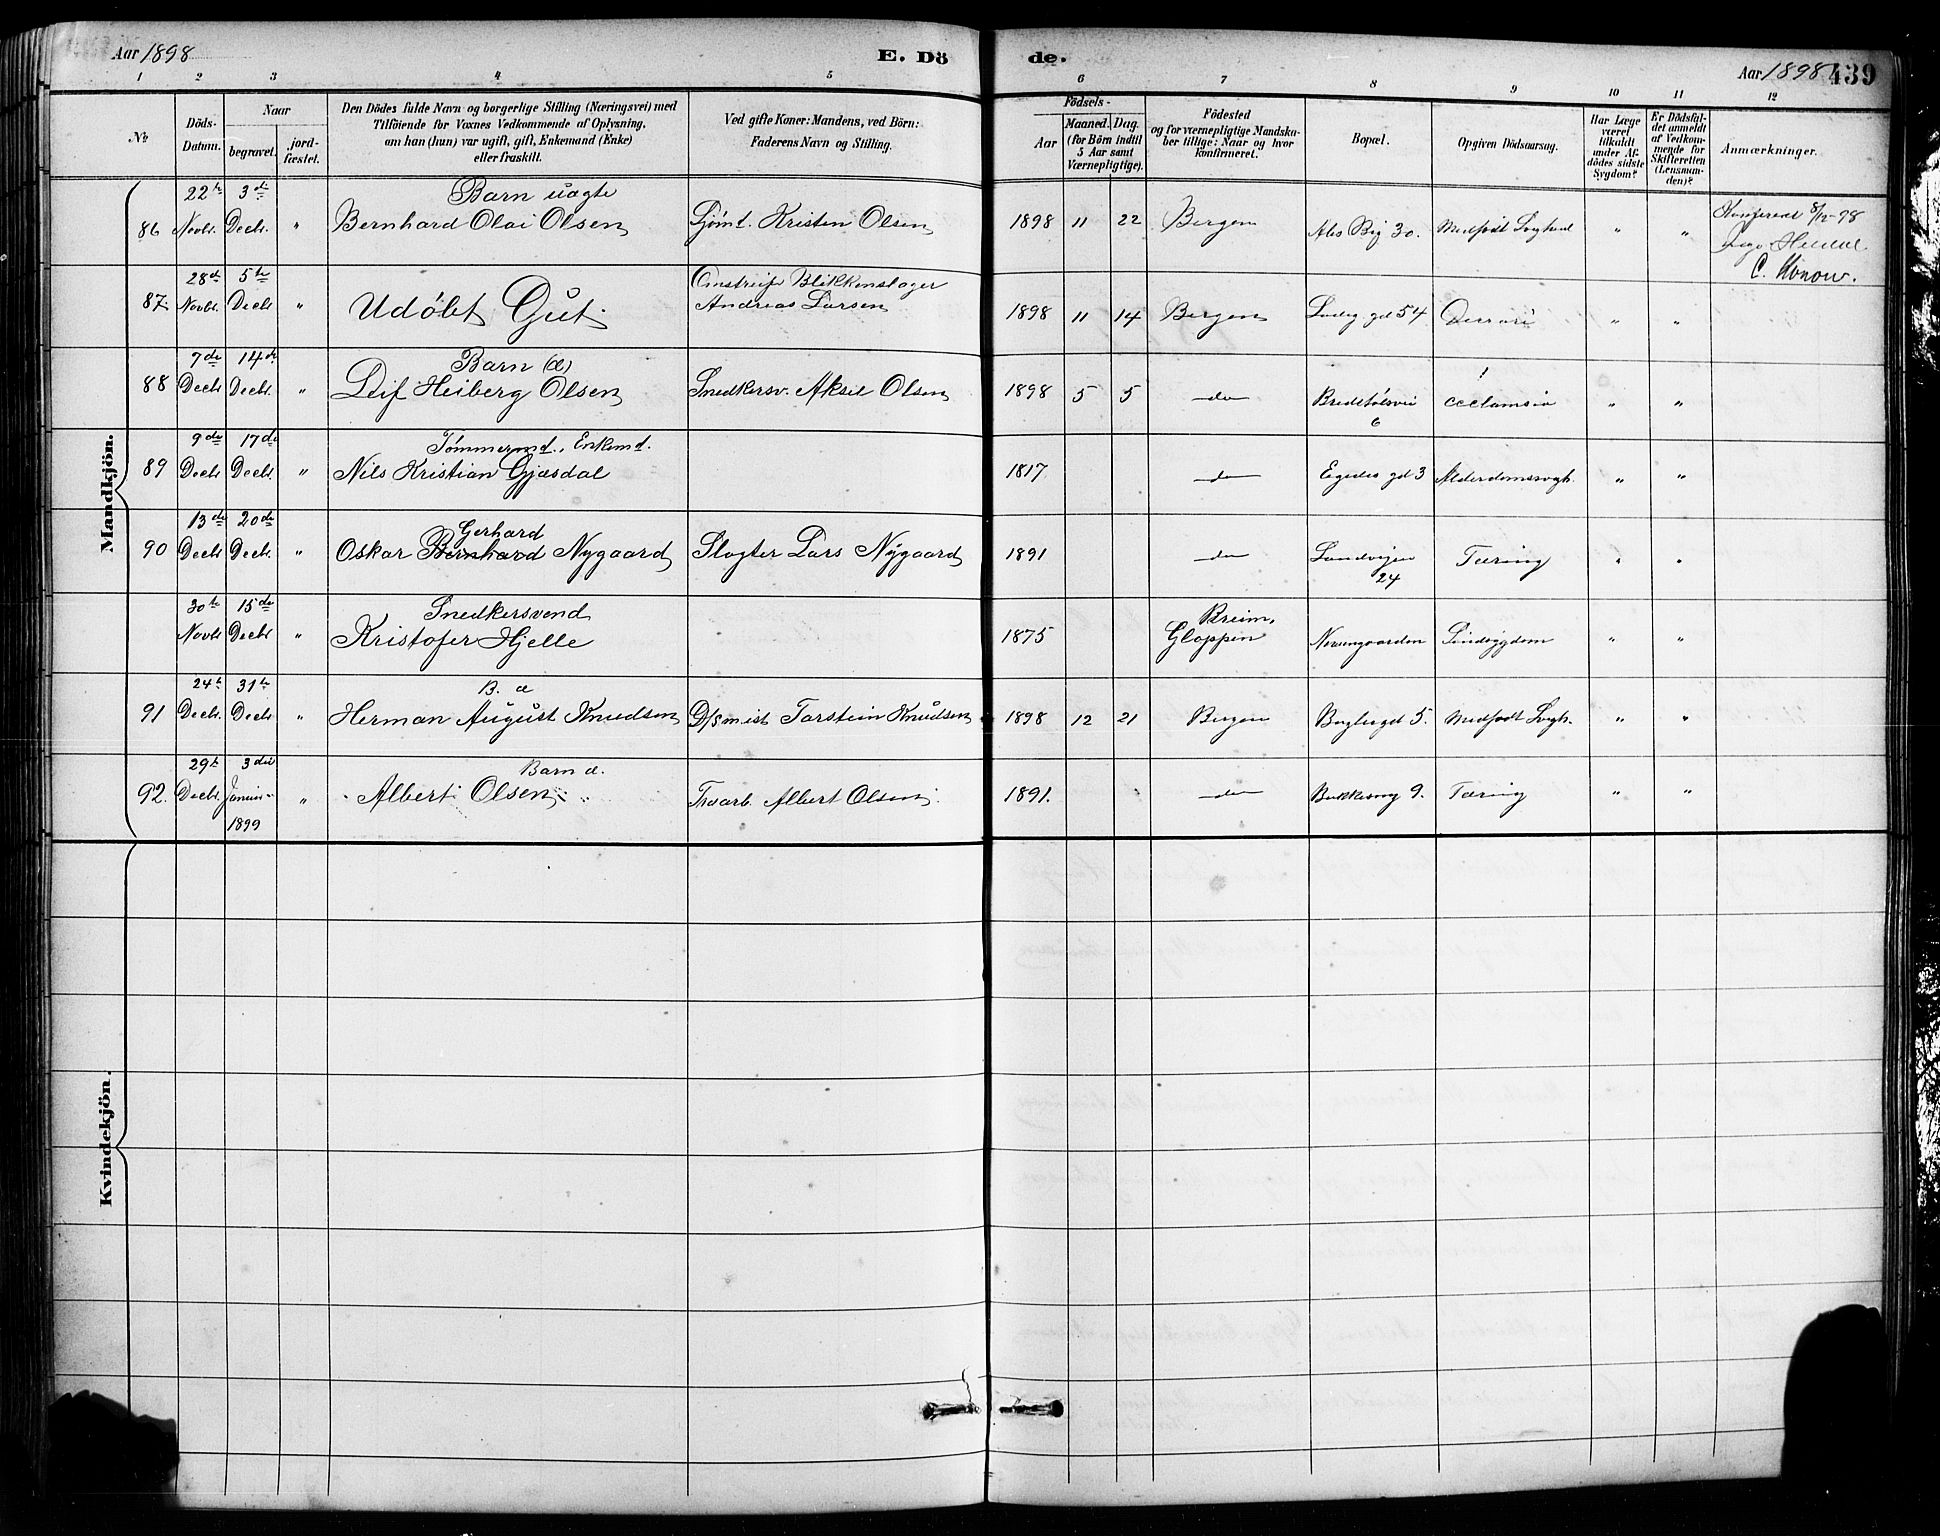 Aar 1898 E. Dö de. Aar 1898 439
1 2 3 4 5 6 7 8 9 10 11 12
No
Döds-Datum.
Naar
begravet.
jordfæstet.
Den Dödes fulde Navn og borgerlige Stilling (Næringsvei) med
Tilföiende for Voxnes Vedkommende af Oplysning,
om han (hun) var ugift, gift, Enkemand (Enke)
eller fraskilt.
Ved gifte Koner: Mandens, ved Börn:
Faderens Navn og Stilling.
Födsels-
Aar
Maaned. Dag.
(for Börn indtil
5 Aar samt
Værnepligtige).
Födested
og for værnepligtige Mandskaber
tillige: Naar og hvor
konfirmeret.
Bopæl.
Opgiven Dödsaarsag.
Har Læge
været
tilkaldt
under Afdödes
sidste
Sygdom?
Er Dödsfaldet
anmeldt
af Vedkommende
for
Skifteretten
(Lensmanden)?
Anmærkninger.
Mandkjön.
22de 3de Barn uægte
86 Novbr. Decbr. " Bernhard Olai Olsen Sjømd. Kristen Olsen 1898 11 22 Bergen 30. Medfødt Svaghed " " 8/12-98
C. Konow.
28de 5te Blikkenslager
87 Novbr. Decbr " Udøbt Gut Andreas Larsen 1898 11 14 Bergen gd 54 " "
7de 14de Barn (æ)
88 Decbr Decbr. " Leif Heiberg Olsen Snedkersv. Aksel Olsen 1898 5 5 do 6 Eclamsia " "
9de 17de Tømmermd., Enkemd.
89 Decbr Decbr. " Nils Kristian Gjæsdal 1817 do Egedes gd 3 Alderdomssvagh. " "
13de 20de Gerhard
90 Decbr Decbr. " Oskar Bernhard Nygaard Slagter Lars Nygaard 1891 do Sandvigen 24 Tæring " "
30te 15de Snedkersvend Breim,
Novbr Decbr " Kristofer Hjelle 1875 Gloppen Sindssygdom " "
24de 31te B. æ
91 Decbr. Decbr. " Herman August Knudsen Torstein Knudsen 1898 12 21 Bergen gd 5. Medfødt Svagh. " "
29de 3die Barn æ.
92. Decbr. Januar 1899 " Albert Olsen Albert Olsen 1891. do 9. Tæring " "
Kvindekjön.